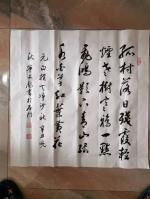 孤村落日殘霞輕
煙老樹寒鴉一點
飛鴻影下青山綠
水白草紅葉黃花
元白樸天淨沙秋辛丑
秋書於石門